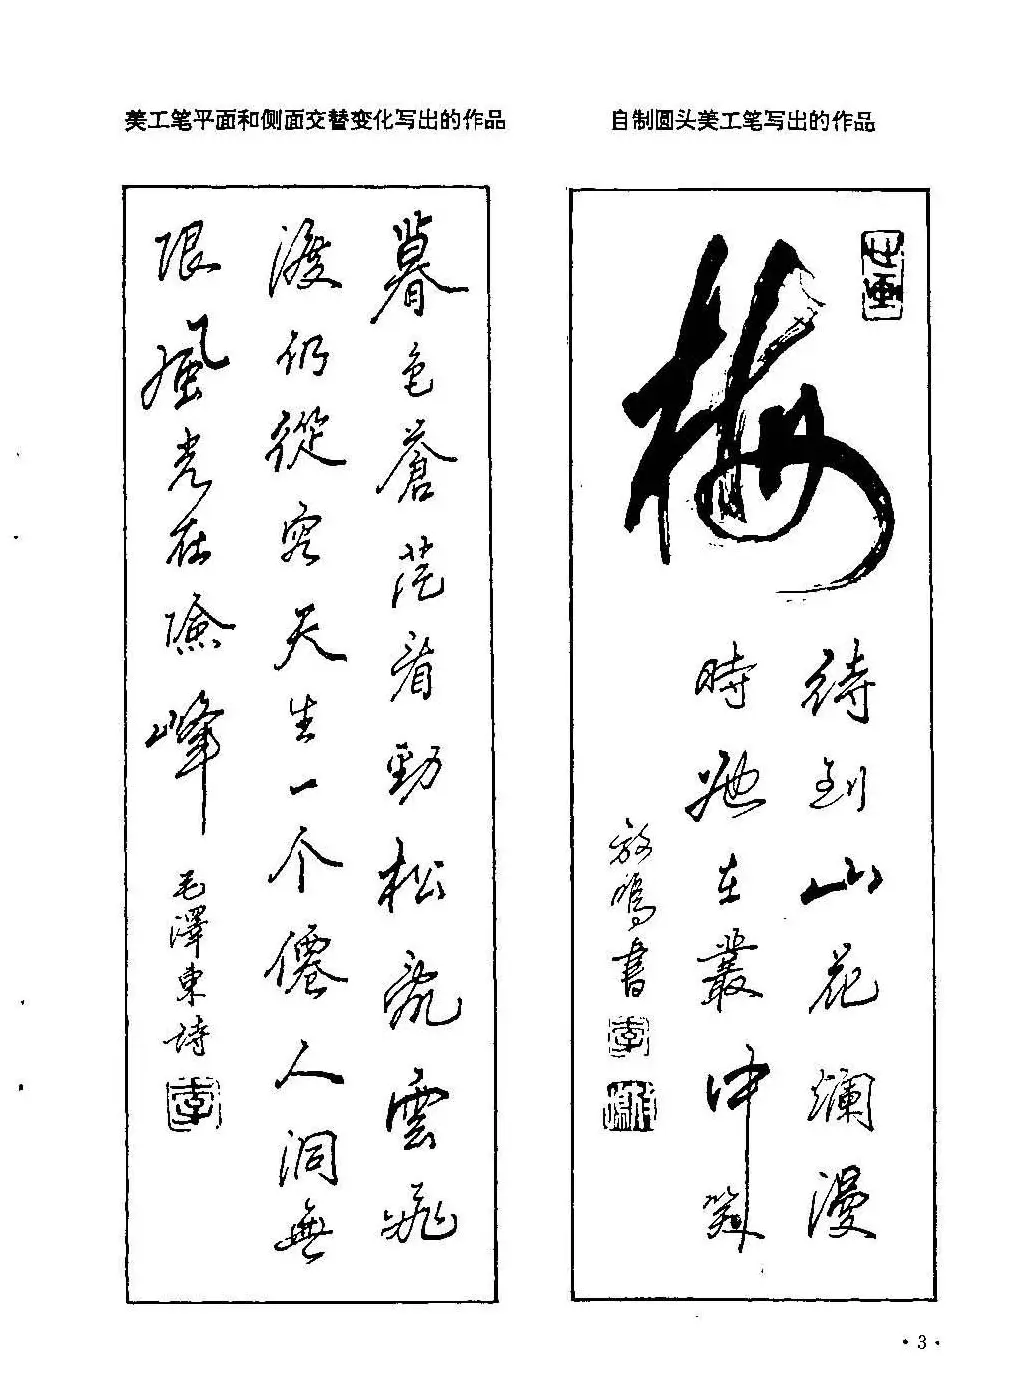 美工笔平面和侧面交替变化写出的作品
暮色蒼茫看勁松亂雲飛
渡仍從容天生一个僊人洞無
限風光在險峰
毛澤東詩
李
自制圆头美工笔写出的作品
梅
待到山花爛漫
時她在叢中笑
放鳴書
李
·3·